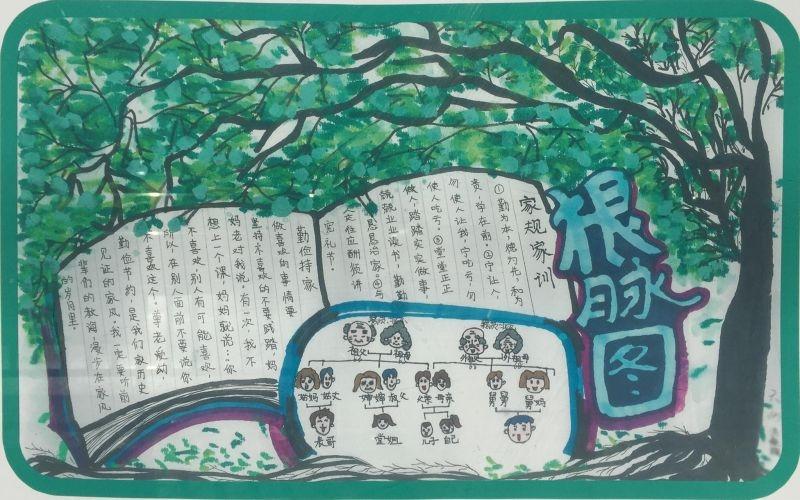 根脉图
家规家训
①勤为本,德为先,和为
贵,学在前。②宁让人
勿使人让我,宁吃亏,勿
使人吃亏。③堂堂正正
做人,踏踏实实做事,
兢兢业业读书,勤勤
恳恳治家。④与
定位应酬须讲
究礼节。
勤俭持家
做喜欢的事情要
坚持不喜欢的不要践踏,妈
妈老对我说,有一次,我不
想上一个课,妈妈就说:“你
不喜欢,别人有可能喜欢,
所以在别人面前不要说你
不喜欢这个。”尊老爱幼,
勤俭节约,是我们家历史
见证的家风,我一定要听前
辈们的教诲,漫步在家风
的岁月里。
祖父 祖母 外祖父 外祖母
姑妈 姑丈 婶婶 叔父 父亲 母亲 舅舅 舅妈
表哥 堂姐 儿子 自己